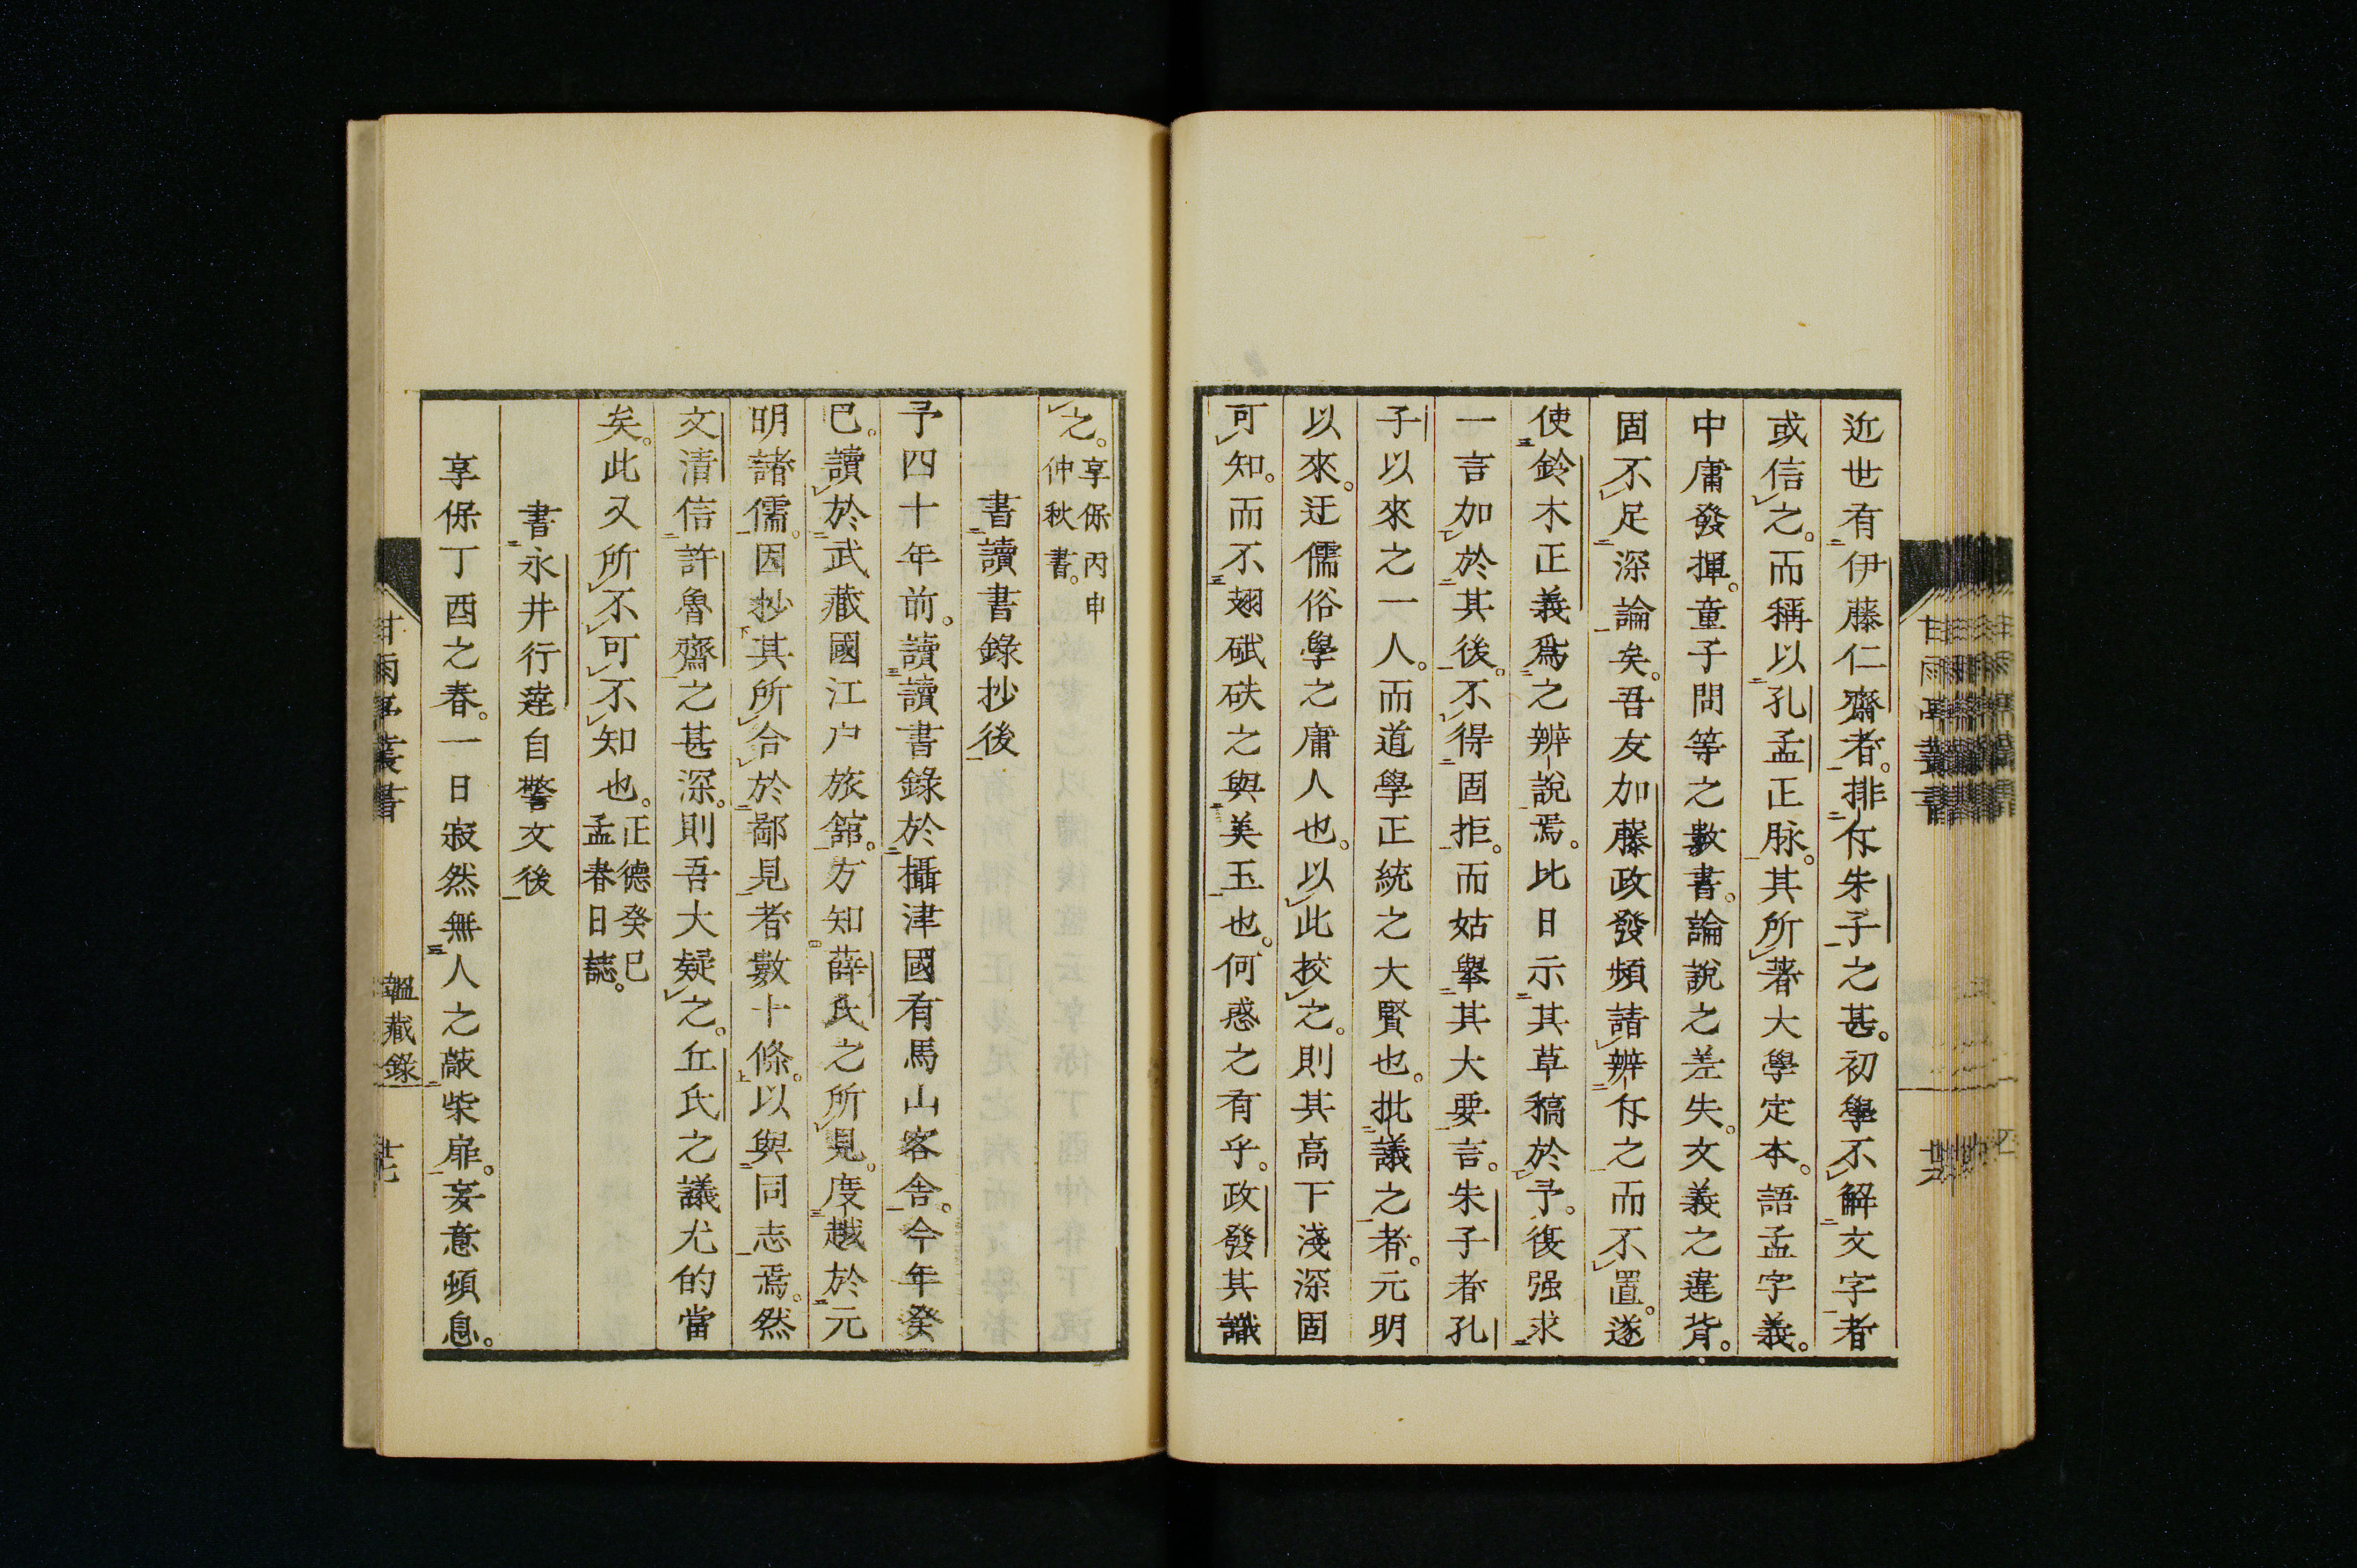 近世有伊藤仁齋者。排斥朱子之甚。初學不解文字者
或信之。而稱以孔孟正脉。其所著大學定本。語孟字義。
中庸發揮。童子問等之數書。論說之差失。文義之違背。
固不足深論矣。吾友加藤政發頻請辨斥之而不置。遂
使鈴木正義爲之辨說焉。比日示其草稿於予。復强求
一言加於其後。不得固拒。而姑舉其大要言。朱子者孔
子以來之一人。而道學正統之大賢也。批議之者。元明
以來。迂儒俗學之庸人也。以此挍之。則其高下淺深固
可知。而不翅碔砆之與美玉也。何惑之有乎。政發其識
之。享保丙申
仲秋書。
書讀書錄抄後
予四十年前。讀讀書錄於攝津國有馬山客舍。今年癸
巳。讀於武藏國江戶旅舘。方知薛氏之所見。度越於元
明諸儒。因抄其所合於鄙見者數十條。以與同志焉。然
文清信許魯齋之甚深。則吾大疑之。丘氏之議尤的當
矣。此又所不可不知也。正德癸巳
孟春日誌。
書永井行達自警文後
享保丁酉之春。一日寂然無人之敲柴扉。妄意頻息。
甘雨亭叢書
韞藏錄